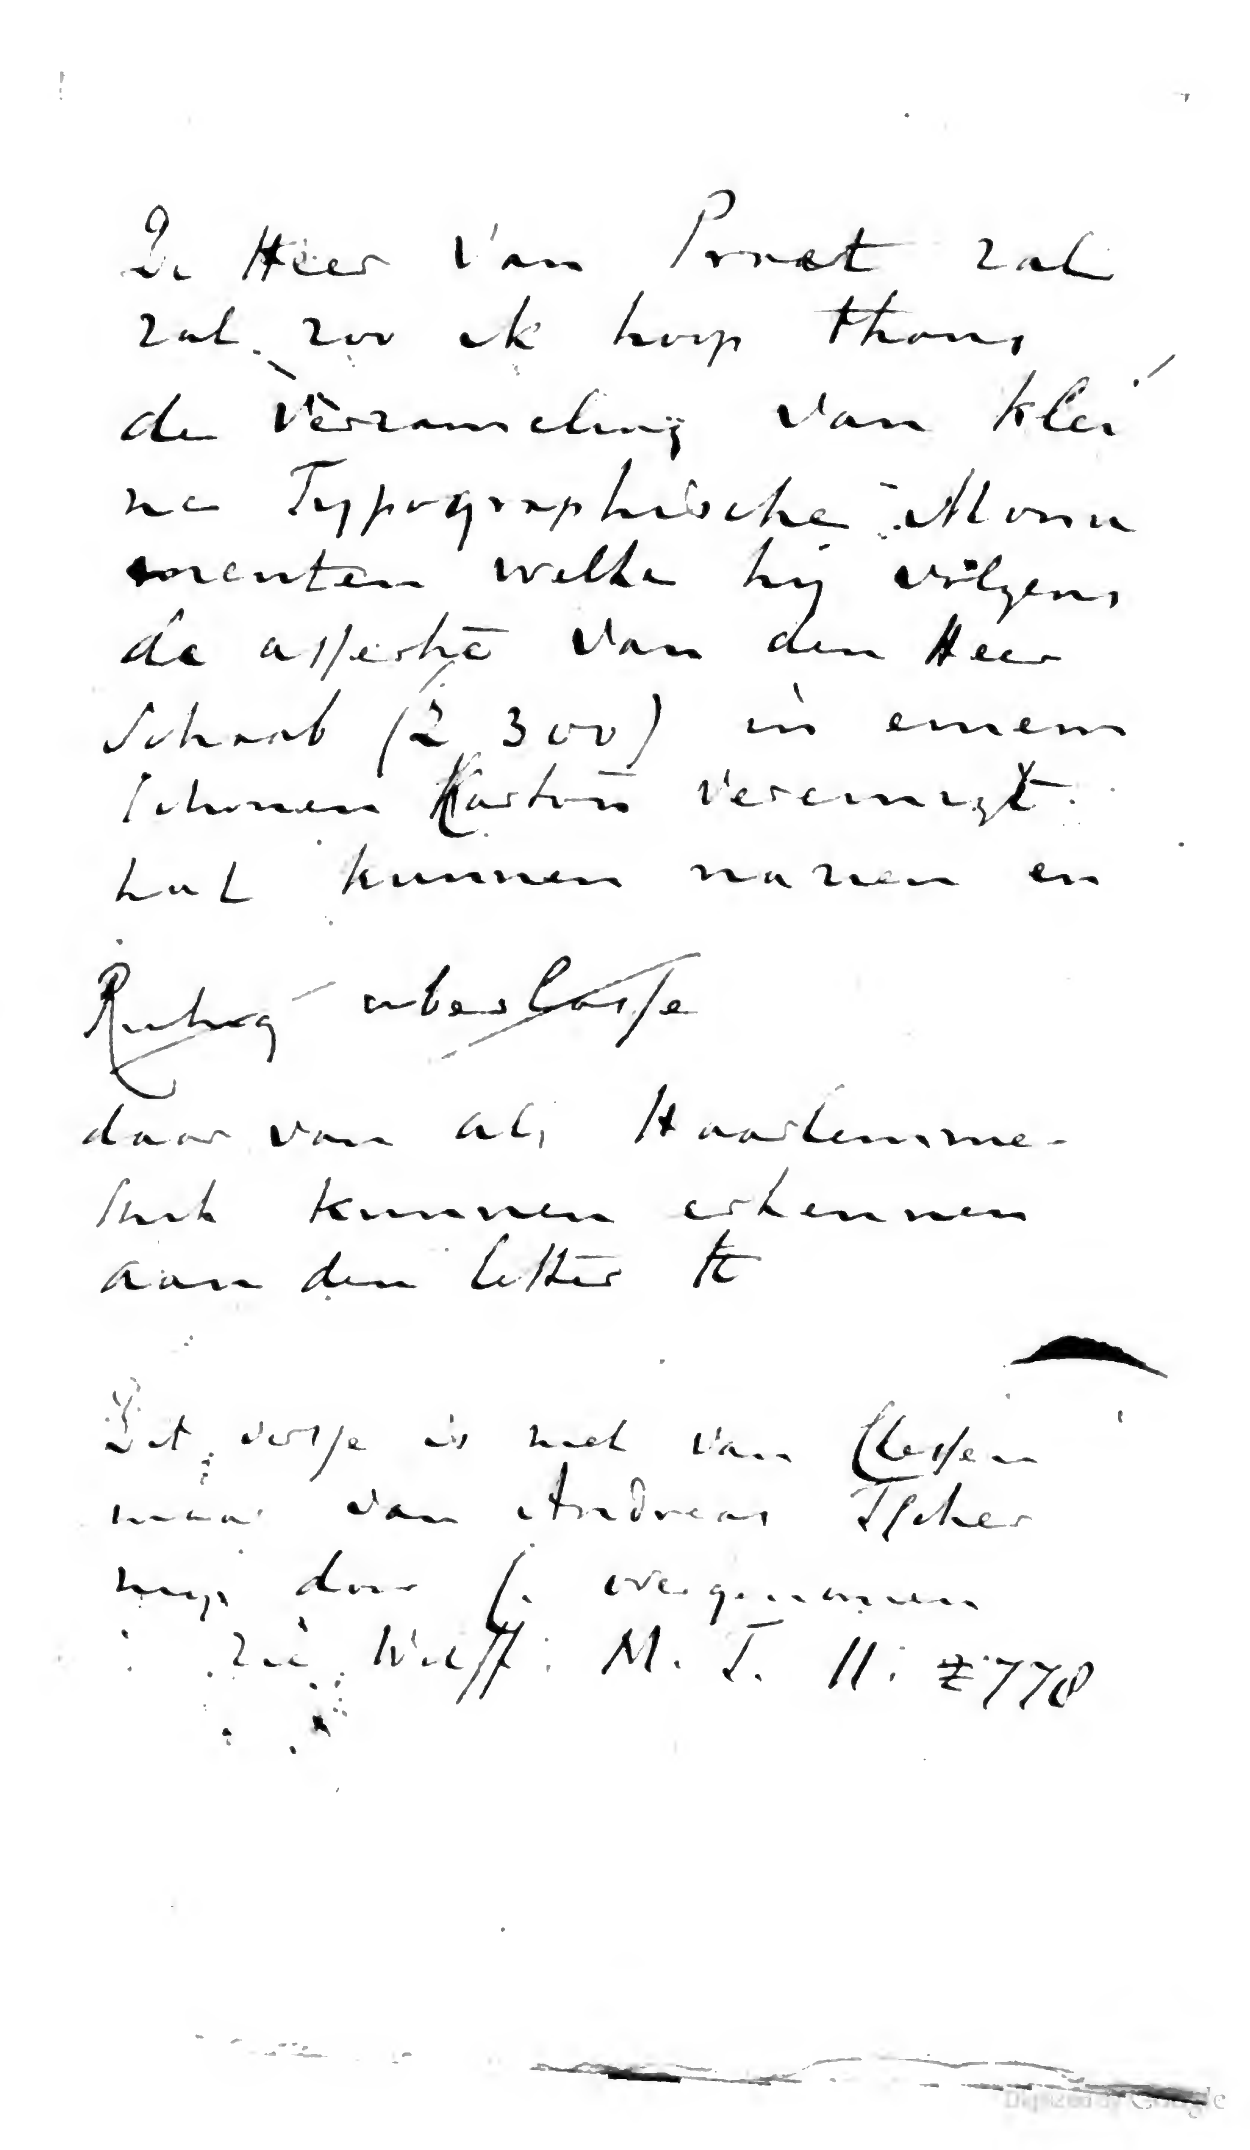 De Heer Van Praet zal
zal zoo ik hoop thans
de Verzameling van klei
ne Typographische Monu
menten welke hij volgens
de assertie van den Heer
Schaab (2 300) in einem
schonen Karton vereinigt
hat kunnen nazien en
Ruhig uberlasse
daar van als Haarlemme-
kunnen erkennen
aan den letter
Dit versje is niet van Clessen
maar van Andreas
door overgenomen
zie Wolff. M. T. II. 778
Digitized by Google